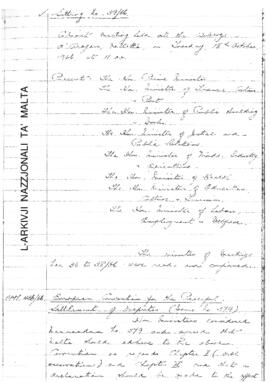 Sitting No. 39/66
Cabinet meeting held at the Auberge
d'Aragon, Valletta, on Tuesday, 18th October,
1966 at 11 a.m.
Present: The Hon. Prime Minister
The Hon. Minister of Finance, Customs
& Port
The Hon. Minister of Public Building
& Works
The Hon. Minister of
Public Relations
The Hon. Minister of Trade, Industry
& Agriculture
The Hon. Minister of Health
The Hon. Minister of Education,
Culture & Tourism
The Hon. Minister of Labour,
Employment & Welfare
The minutes of Meetings
Nos 36 to 38/66 were read and confirmed.
European Convention for the Peaceful
Settlement of Disputes (Memo No 579)
Hon. Ministers considered
Memo No 579 and agreed that
Malta should adhere to the above
Convention as regards Chapter I (
reservation) and Chapter II and that a
declaration should be made to the effect
L-ARKIVJI NAZZJONALI TA' MALTA